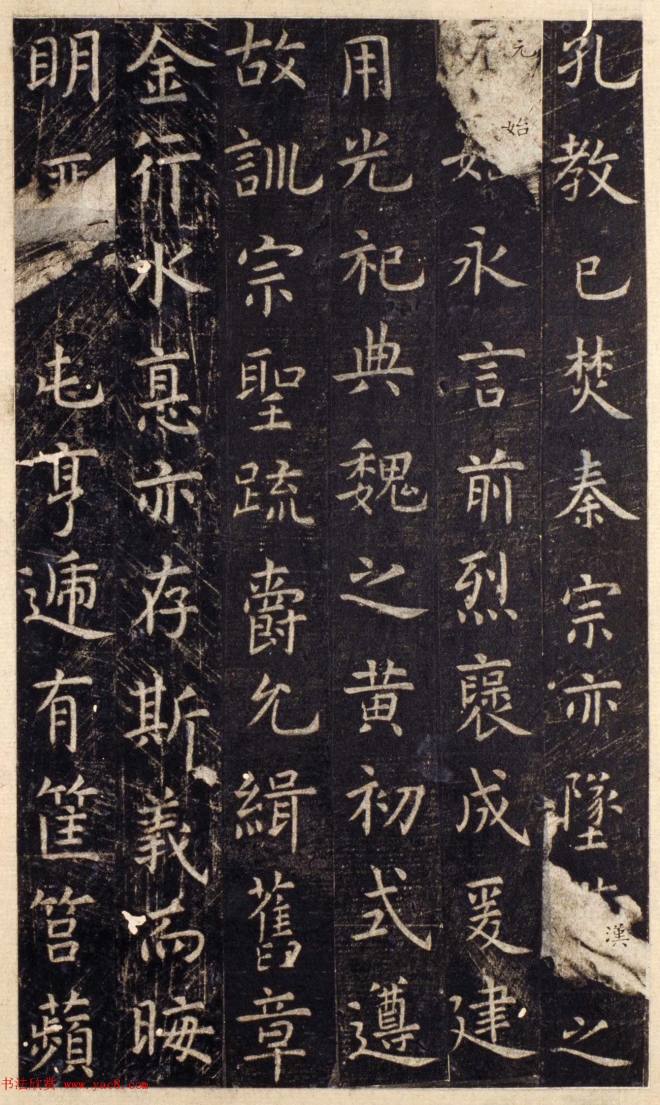 孔教已焚秦宗亦墜漢之
元始永言前烈襃成爰建
用光祀典魏之黄初式遵
故訓宗聖疏爵允緝舊章
金行水悳亦存斯義而晦
眀匪一屯亨遞有筐筥蘋
书法欣赏 www.yac8.com